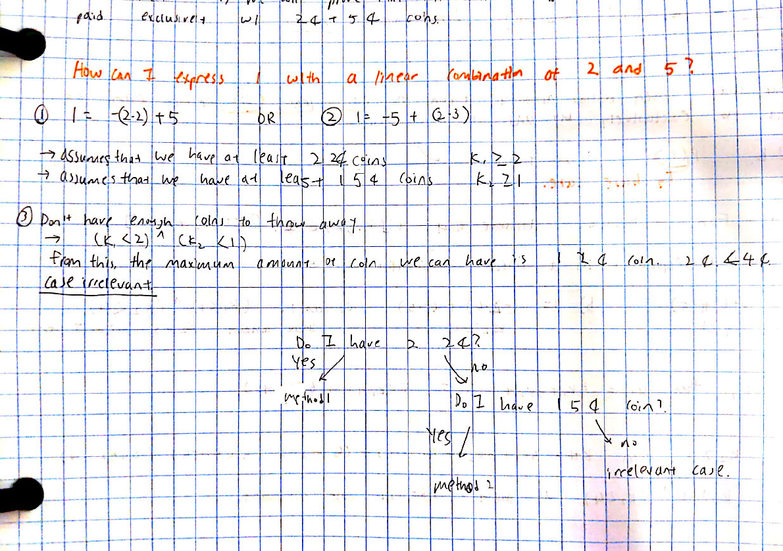 paid exclusively w/ 2¢ + 5¢ coins.
How can I express 1 with a linear combination of 2 and 5?
① 1 = -(2·2) + 5 OR ② 1 = -5 + (2·3)
→ assumes that we have at least 2 2¢ coins K₁ ≥ 2
→ assumes that we have at least 1 5¢ coins K₂ ≥ 1
③ Don't have enough coins to throw away
→ (K₁ < 2) ^ (K₂ < 1)
From this, the maximum amount of coin we can have is 1 2¢ coin. 2¢ < 4¢.
case irrelevant
Do I have 2 2¢?
Yes no
method 1 Do I have 1 5¢ coin?
Yes no
irrelevant case.
method 2